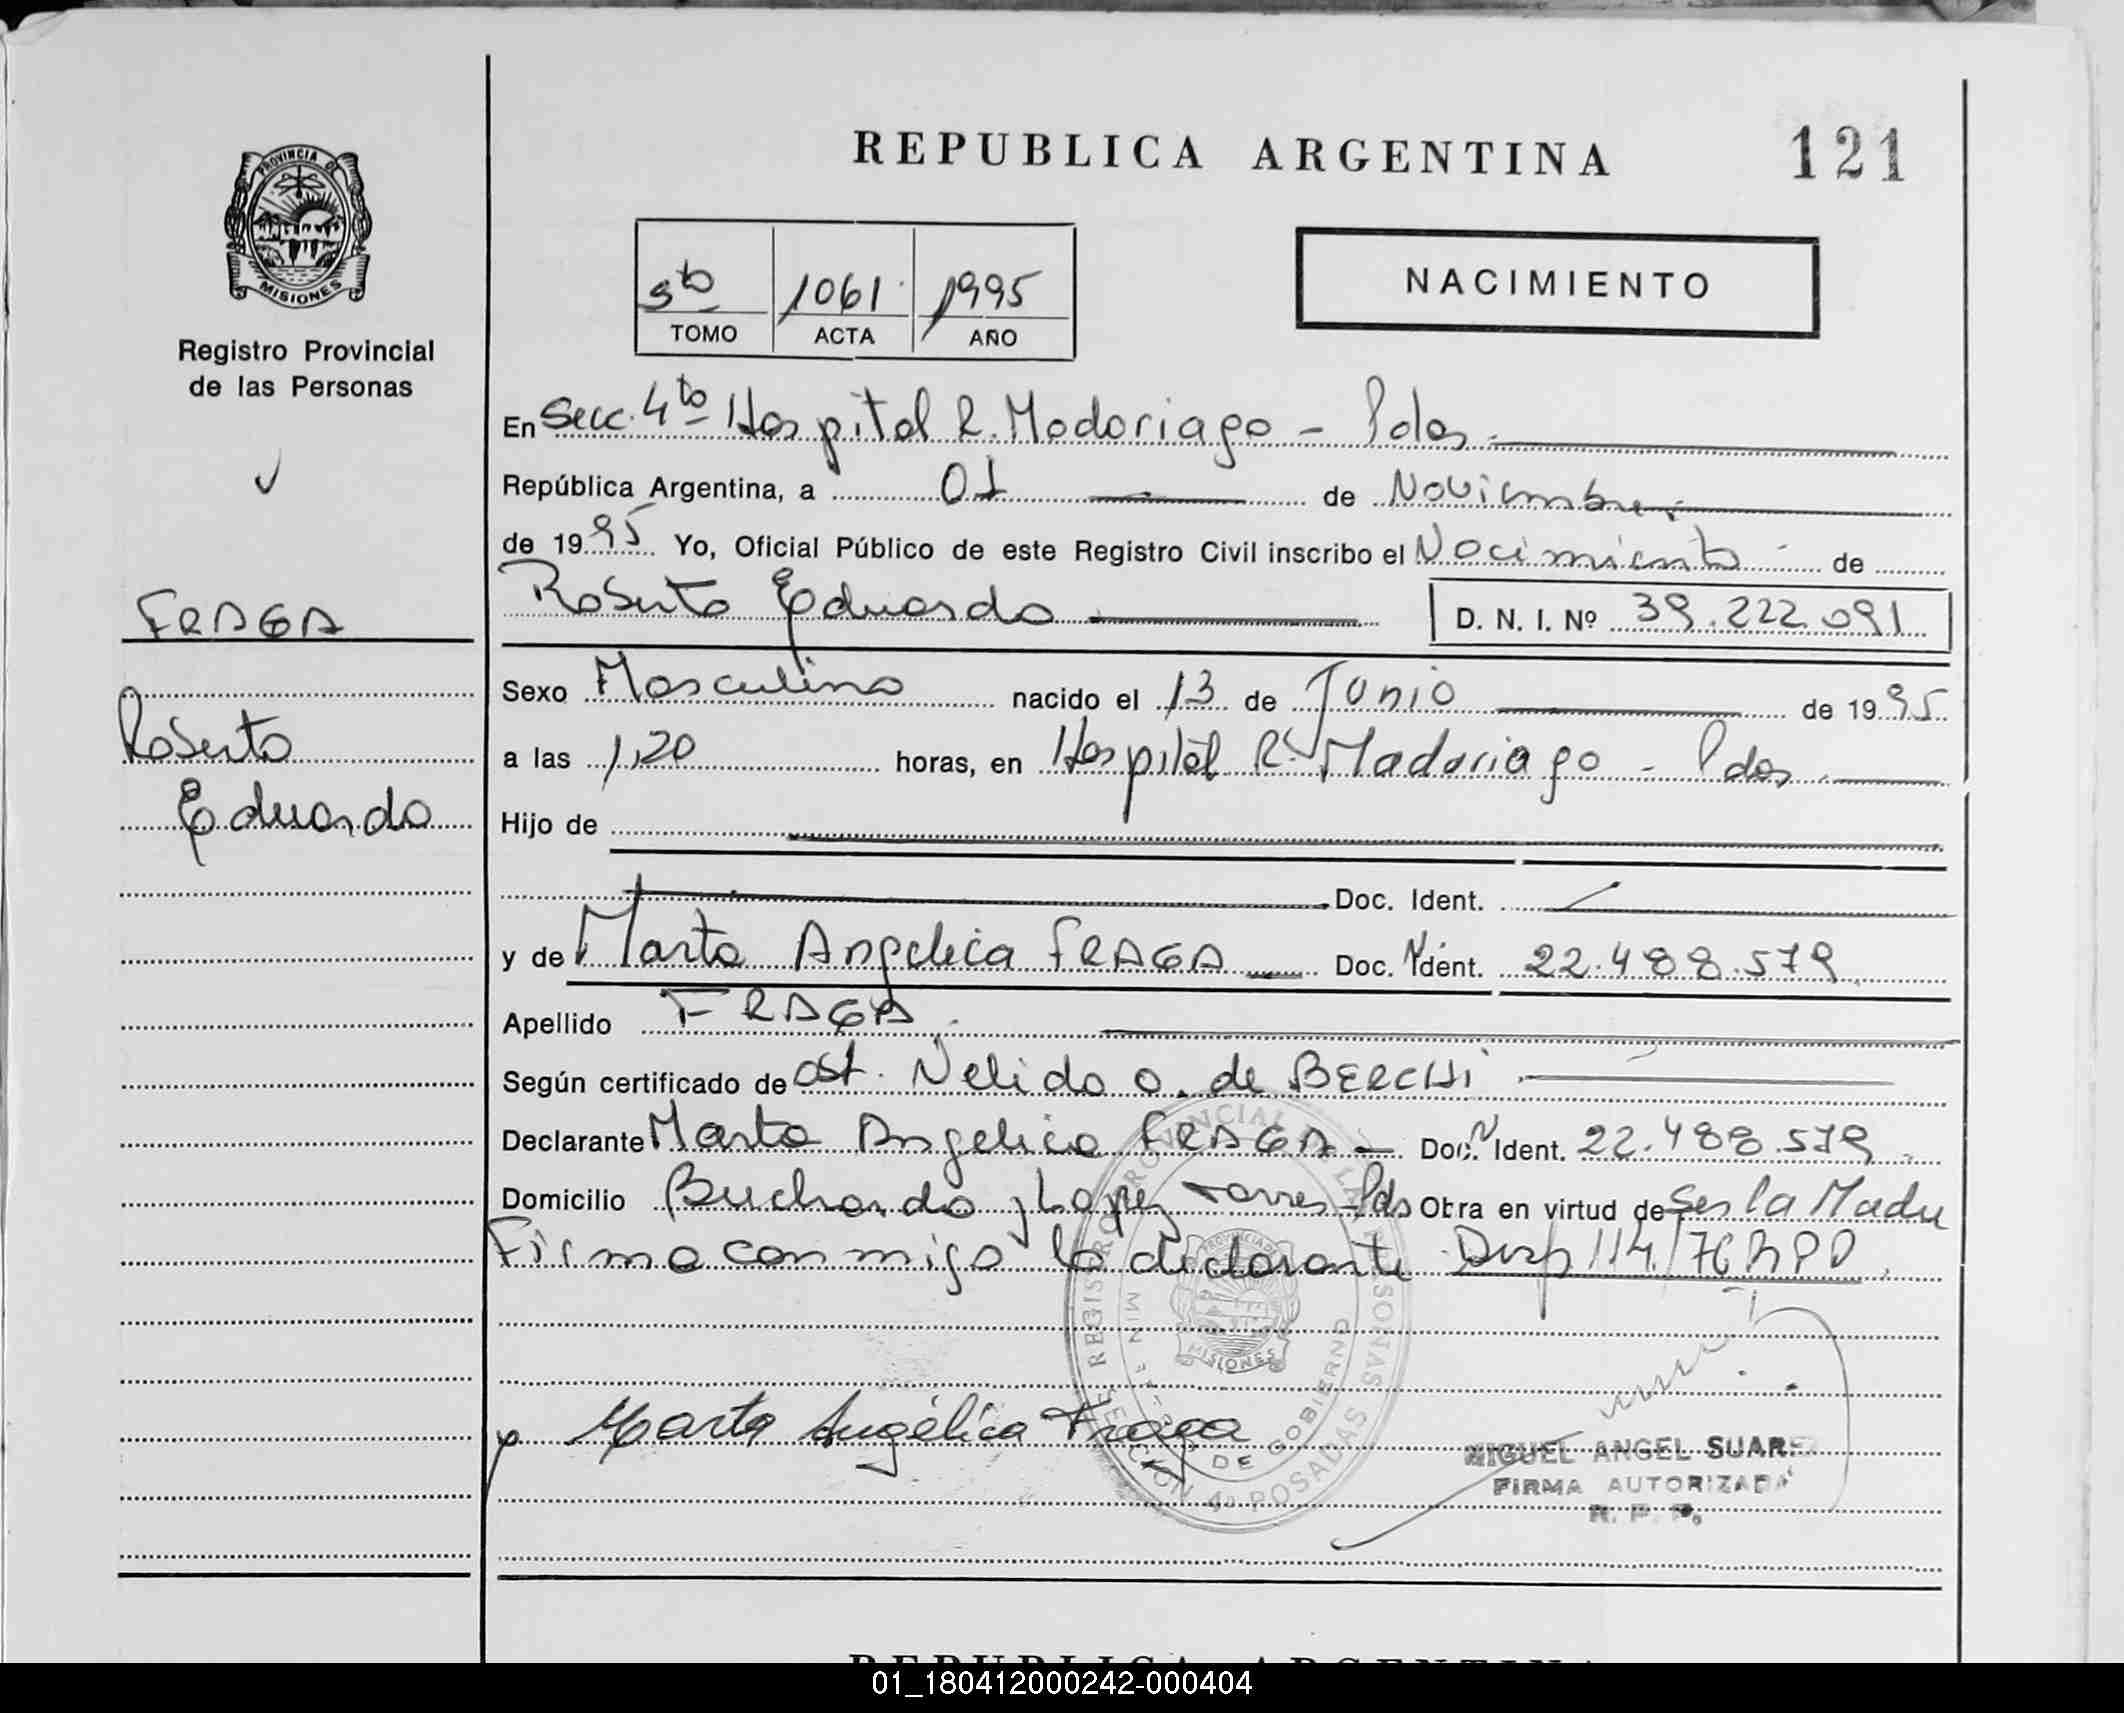 REPUBLICA ARGENTINA
121
PROVINCIA DE
MISIONES
Registro Provincial
de las Personas
5to 1061 1995
TOMO ACTA AÑO
NACIMIENTO
En Secc. 4to Hospital R. Madariaga - Pdas.
República Argentina, a 01 de Noviembre
de 1995 Yo, Oficial Público de este Registro Civil inscribo el Nacimiento de
Roberto Eduardo D. N. I. Nº 39.222.091
FRAGA
Roberto
Eduardo
Sexo Masculino nacido el 13 de Junio de 1995
a las 1,20 horas, en Hospital R. Madariaga - Pdas.
Hijo de
Doc. Ident.
y de Marta Angelica FRAGA Doc. Ident. 22.488.579
Apellido FRAGA
Según certificado de ost. Nelida O. de BERCHI
Declarante Marta Angelica FRAGA Doc. Ident. 22.488.579
Domicilio Buchardo y Lopez Torres Pds Otra en virtud de Ser la Madre
Firma conmigo la declarante Disp 114/76 RPP
REGISTRO PROVINCIAL DE LAS PERSONAS
MIN DE GOBIERNO
PROVINCIA DE
MISIONES
SECCION 4a POSADAS
Marta Angélica Fraga
MIGUEL ANGEL SUAREZ
FIRMA AUTORIZADA
R. P. P.
REPUBLICA ARGENTINA
01_180412000242-000404